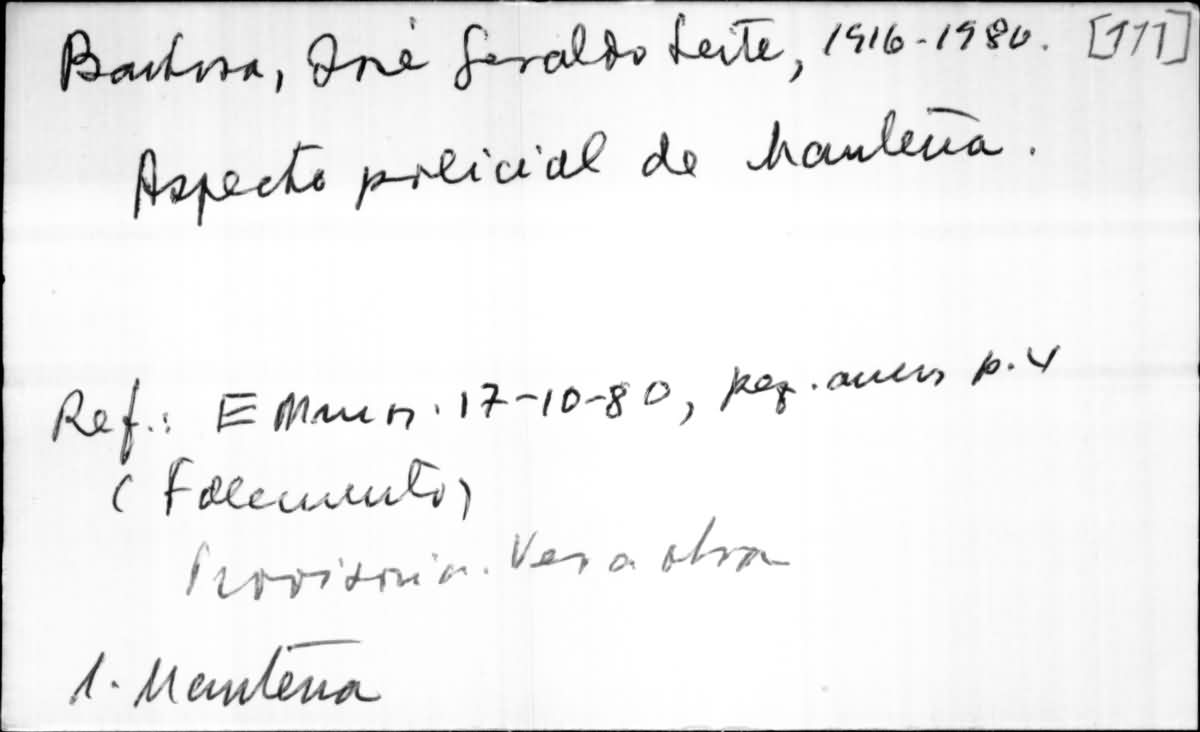 Barbosa, José Geraldo Leite, 1916-1980. [111]
Aspecto policial de Mantena.
Ref.: E Minas. 17-10-80, p. 4
(Falecimento)
Provisória. Ver a obra
1. Mantena